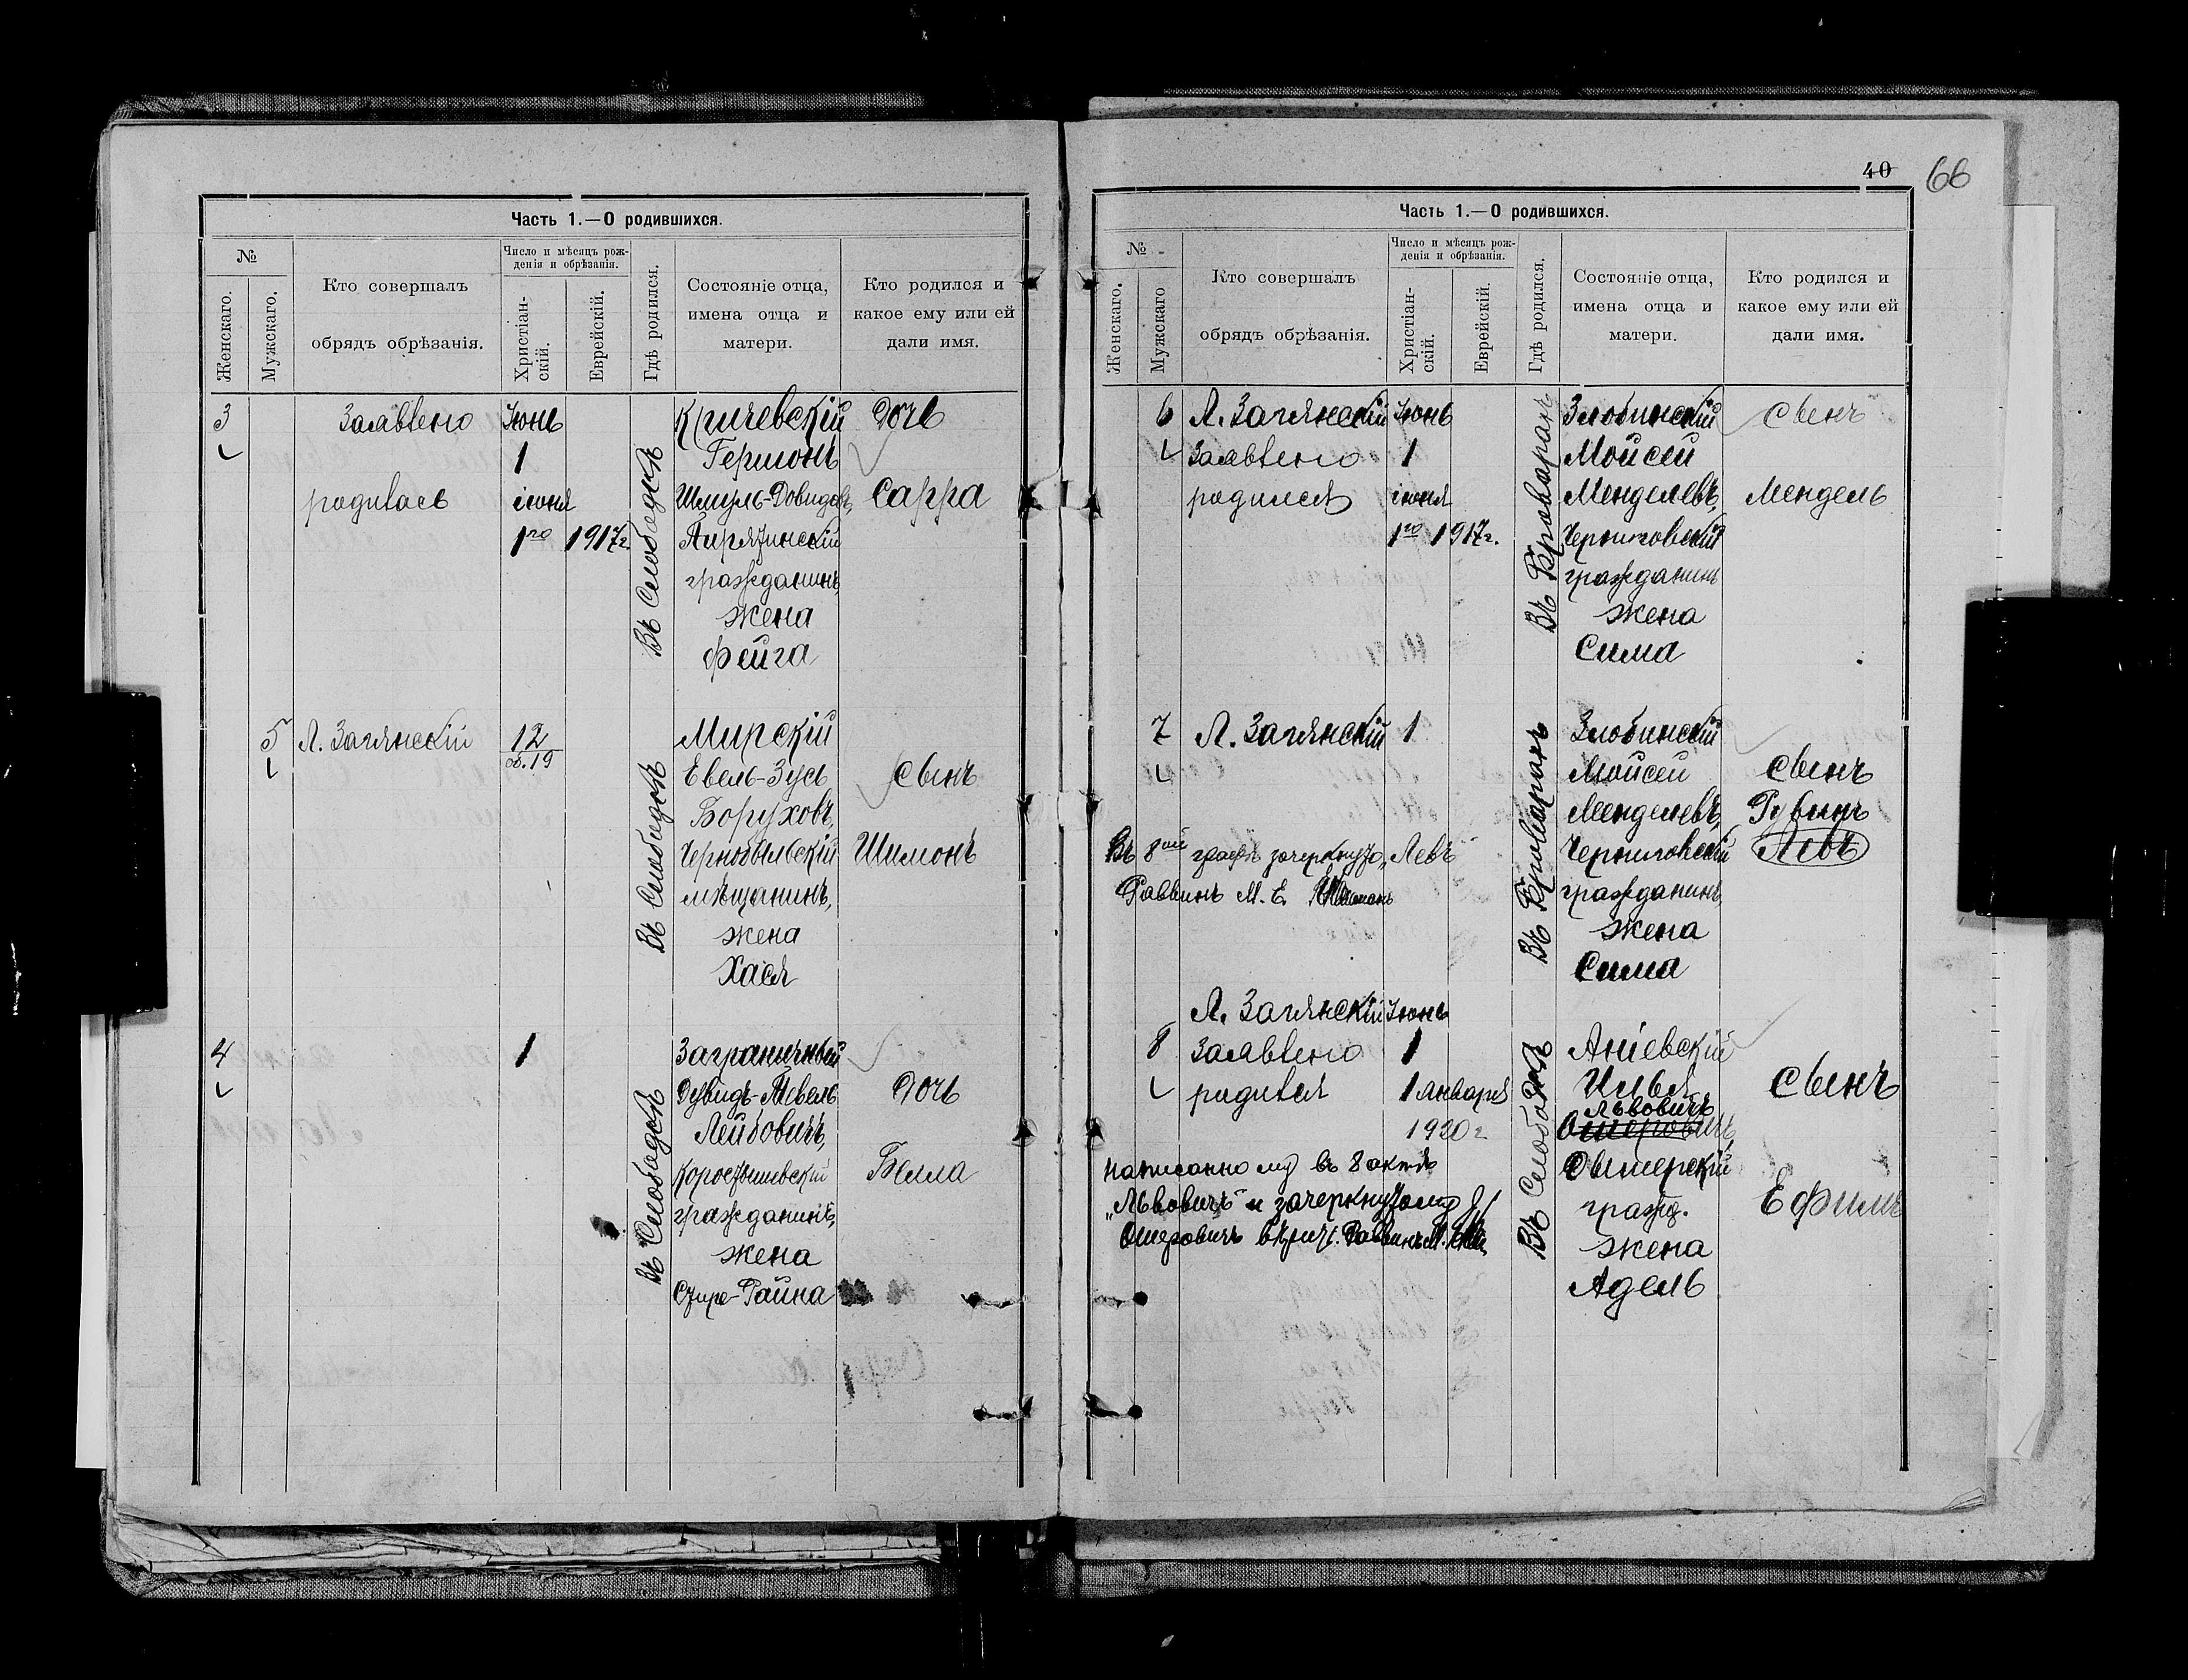 Часть 1.—О родившихся.
№
Женскаго.
Мужскаго.
Кто совершалъ
обрядъ обрѣзанія.
Число и мѣсяцъ рож-
денія и обрѣзанія.
Христіан-
скій.
Еврейскій.
Гдѣ родился.
Состояніе отца,
имена отца и
матери.
Кто родился и
какое ему или ей
дали имя.
3
Заявлено
родилась
Іюнь
1
іюня
1го 1917г.
Въ Слободкѣ
Кричевскій
Гершонъ
Шмуль-Довидовъ,
Пирятинскій
гражданинъ,
жена
Фейга
Дочь
Сарра
5
Л. Заглянскій
12
об. 19
Въ Слободкѣ
Мирскій
Евель-Зусь
Боруховъ,
Чернобыльскій
мѣщанинъ,
жена
Хася
сынъ
Шимонъ
4
1
Въ Слободкѣ
Заграничный
Дувидъ-
Лейбовичъ,
Коростышевскій
гражданинъ,
жена
Стире-Райна
Дочь
Бейла
40 66
Часть 1.—О родившихся.
№
Женскаго.
Мужскаго
Кто совершалъ
обрядъ обрѣзанія.
Число и мѣсяцъ рож-
денія и обрѣзанія.
Христіан-
скій.
Еврейскій.
Гдѣ родился.
Состояніе отца,
имена отца и
матери.
Кто родился и
какое ему или ей
дали имя.
6
Л. Заглянскій
Заявлено
родился
Іюнь
1
іюня
1го 1917г.
Въ Броварахъ
Злобинскій
Мойсей
Менделевъ,
Черниговскій
гражданинъ
жена
Сима
сынъ
Мендель
7
Л. Заглянскій
1
Въ Броварахъ
Злобинскій
Мойсей
Менделевъ,
Черниговскій
гражданинъ,
жена
Сима
сынъ
Рувинъ
Левъ
Въ 8ой графѣ зачеркнуто „Левъ"
Раввинъ М. Е.
8
Л. Заглянскій
Заявлено
родился
Іюнь
1
1 января
1920 г
Въ Слободкѣ
Аніевскій
Илья
Львовичъ
Ошеровичъ,
Остерскій
гражд.
жена
Адель
сынъ
Ефимъ
написанному въ 8 актѣ
„Львовичъ" и зачеркнутому
Ошеровичъ Раввинъ М.